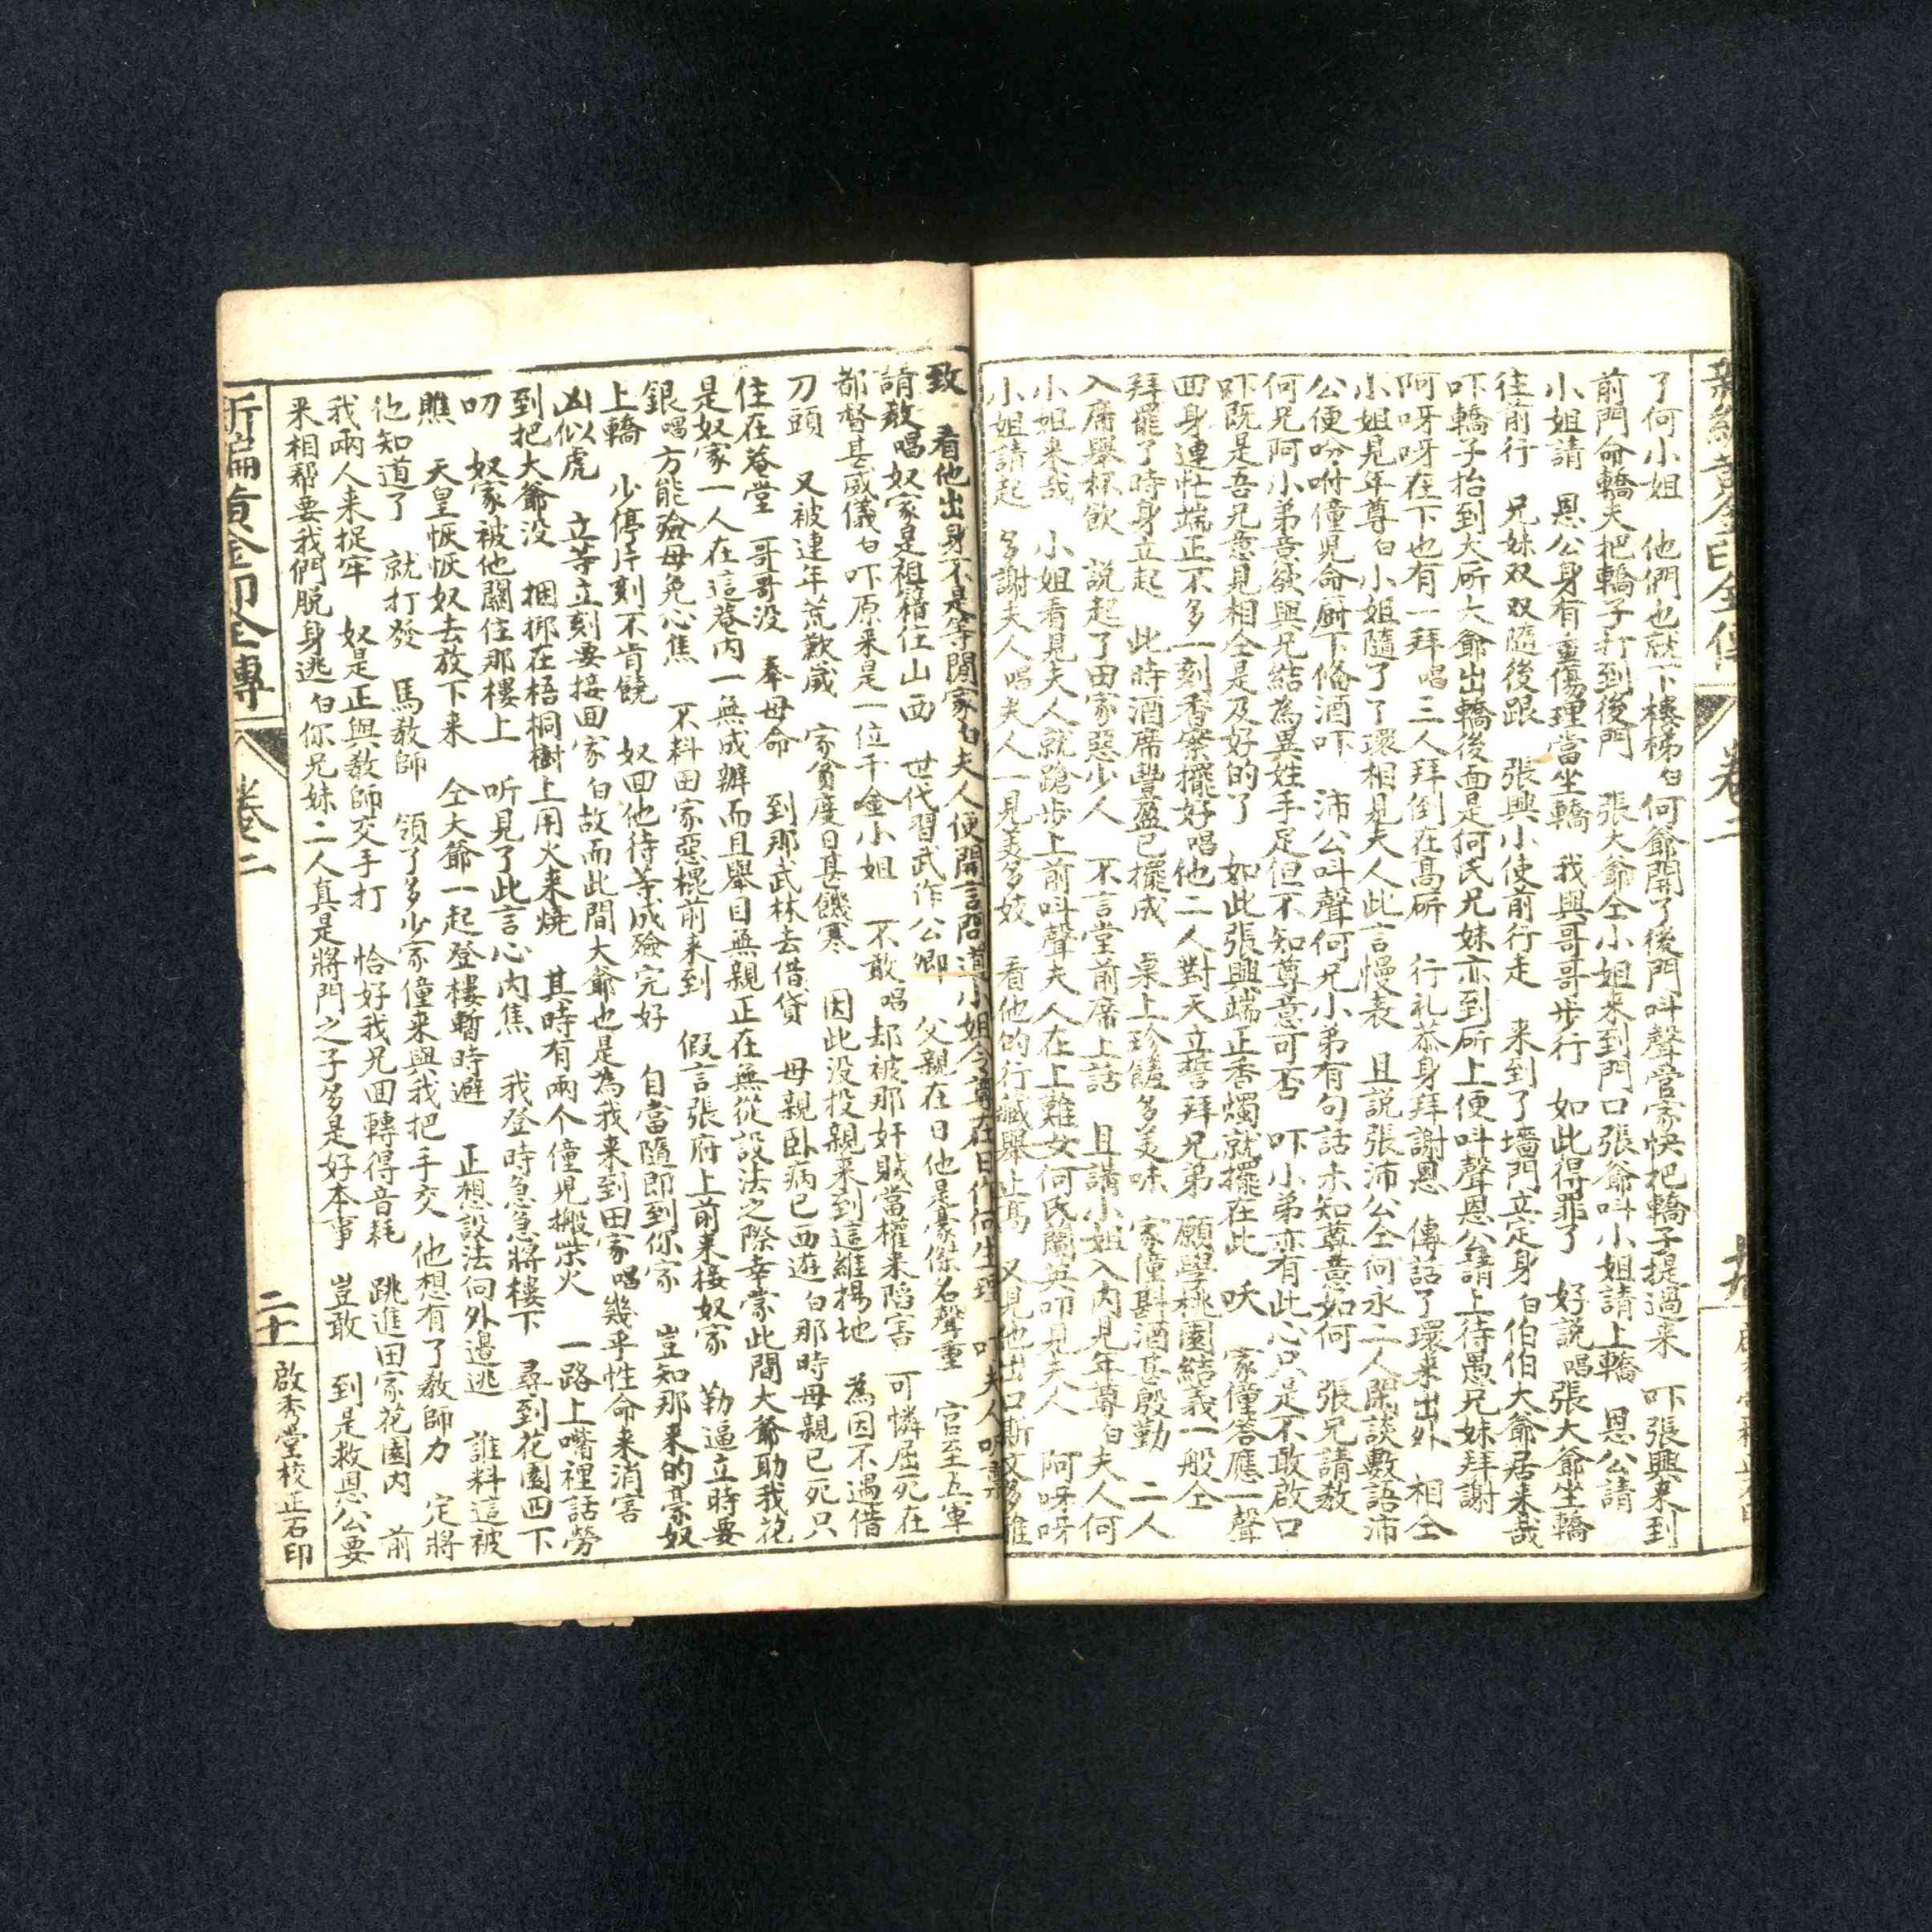 新編黃金印全傳
卷二
十九
了何小姐 他們也就下樓梯白何爺開了後門叫聲管家快把轎子提過来 吓張興来到
前門命轎夫把轎子打到後門 張大爺仝小姐来到門口張爺叫小姐請上轎 恩公請
小姐請 恩公身有重傷理當坐轎 我與哥哥步行 如此得罪了 好説唱張大爺坐轎
往前行 兄妹双双隨後跟 張興小使前行走 来到了墻門立定身白伯伯大爺居来哉
吓轎子抬到大所大爺出轎後面是何氏兄妹亦到所上便叫聲恩公請上待愚兄妹拜謝
阿呀呀在下也有一拜唱三人拜倒在髙所 行礼恭身拜謝恩 傳話了環来出外 相仝
小姐見年尊白小姐隨了了環相見夫人此言慢表 且説張沛公仝何永二人閑談數語沛
公便吩咐僮児命厨下俻酒吓 沛公叫聲何兄小弟有句話未知尊意如何 張兄請教
何兄阿小弟意欲與兄結為異姓手足但不知尊意可否 吓小弟亦有此心只是不敢啟口
吓既是吾兄意見相仝是及好的了 如此張興端正香燭就擺在此 呅 家僮答應一聲
囬身連忙端正不多一刻香案擺好唱他二人對天立誓拜兄弟 願學桃園結義一般仝
拜罷了時身立起 此時酒席豐盈已擺成 桌上珍饈多美味 家僮斟酒甚殷勤 二人
入席舉杯飲 説起了田家惡少人 不言堂前席上話 且講小姐入内見年尊白夫人何
小姐来哉 小姐看見夫人就蹌步上前叫聲夫人在上難女何氏蘭英叩見夫人 阿呀呀
小姐請起 多謝夫人唱夫人一見美多姣 看他的行藏舉止髙 又見他出口斯文多雅
致 看他出身不是等閒家白夫人便開言問道小姐令尊在日作何生理 吓夫人听禀
請教唱奴家是祖籍住山西 世代習武作公卿 父親在日他是豪傑名聲重 官至五軍
都督甚威儀白吓原来是一位千金小姐 不敢唱却被那奸賊當權来陷害 可憐屈死在
刀頭 又被連年荒歉歳 家貧度日甚饑寒 因此没投親来到這維揚地 為因不遇借
住在菴堂 哥哥没 奉母命 到那武林去借貸 母親卧病已西遊白那時母親已死只
是奴家一人在這菴内一無成辦而且舉目無親正在無從設法之際幸蒙此間大爺助我花
銀唱方能殮母免心焦 不料田家惡棍前来到 假言張府上前来接奴家 勒逼立時要
上轎 少停片刻不肯饒 奴囬他待等成殮完好 自當隨即到你家 豈知那来的豪奴
凶似虎 立等立刻要接囬家白故而此間大爺也是為我来到田家唱幾乎性命来消害
到把大爺没 捆綁在梧桐樹上用火来燒 其時有兩个僮児搬柴火 一路上嘴裡話勞
叨 奴家被他關住那樓上 听見了此言心内焦 我登時急急將樓下 尋到花園四下
瞧 天皇恢恢奴去放下来 仝大爺一起登樓暫時避 正想設法向外邉逃 誰料這被
他知道了 就打發 馬教師 領了多少家僮来與我把手交 他想有了教師力 定將
我兩人来捉牢 奴是正與教師交手打 恰好我兄囬轉得音耗 跳進田家花園内 前
来相帮要我們脱身逃白你兄妹二人真是將門之子多是好本事 豈敢 到是救恩公要
新編黃金印全傳
卷二
二十
啟秀堂校正石印